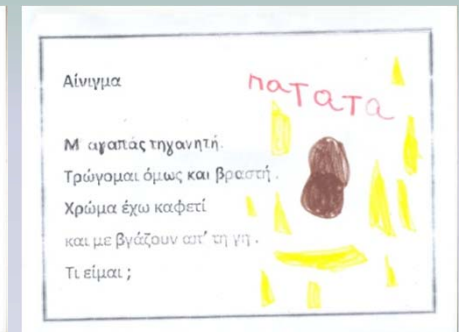 Αίνιγμα
πατατα
Μ' αγαπάς τηγανητή.
Τρώγομαι όμως και βραστή .
Χρώμα έχω καφετί
και με βγάζουν απ' τη γη .
Τι είμαι ;